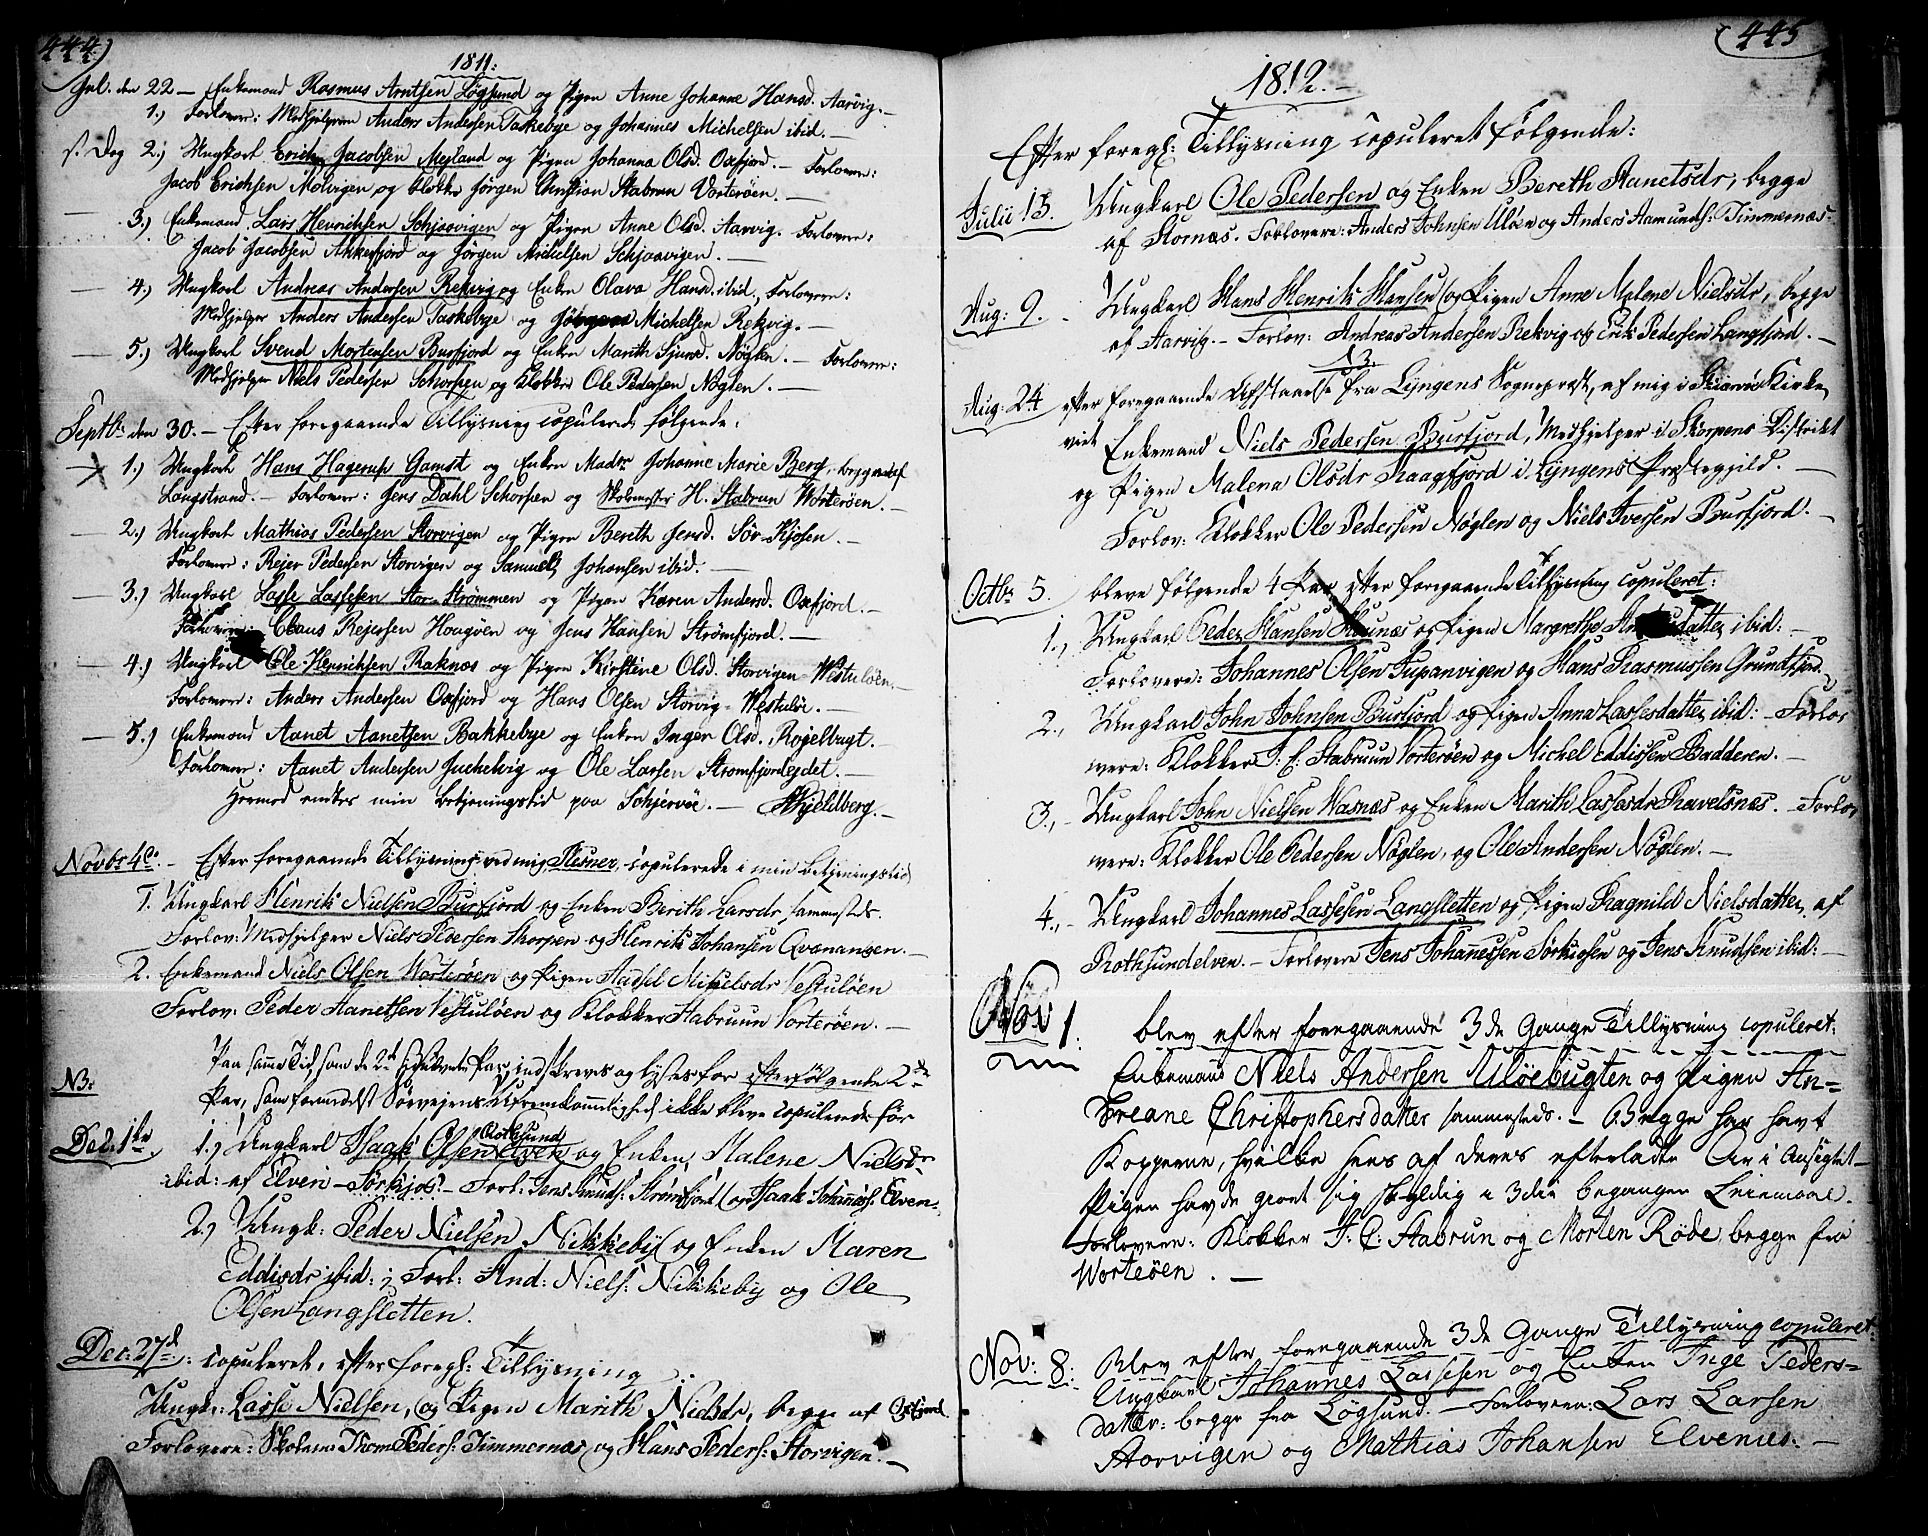 444)
1811:
Jul. den 22 — Enkemand Rasmus Arntsen Løgsund og Pigen Anne Johanne Hansd. Aarvig. —
1.) Forlovere: Medhjelperen Anders Andersen Taskebye og Johannes Michelsen ibid. —
s. Dag 2.) Ungkarl Erich Jacobsen Meiland og Pigen Johanna Olsd. Oxfjord. — Forlovere:
Jacob Erichsen Molvigen og Klokker Jørgen Christian Stabrun Vorterøen. —
— 3.) Enkemand Lars Henrichsen Schjaavigen og Pigen Anne Olsd. Aarvig. Forlovere:
Jacob Jacobsen Akkerfjord og Jörgen Michelsen Schjaavigen. —
— 4.) Ungkarl Andreas Andersen Rekvig og Enken Olava Hansd. ibid., Forlovere:
Medhjelper Anders Andersen Taskebye og Michelsen Rekvig. —
— 5.) Ungkarl Svend Mortensen Burfjord og Enken Marith Sjurd. Nøglen. — Forlovere:
Medhjelper Niels Pedersen Schorpen og Klokker Ole Pedersen Nøglen. —
Septbr den 30. — Efter foregaaende Tillysning copulered følgende:
1.) Ungkarl Hans Hagerup Gamst og Enken Madm Johanne Marie Berg, begge af
Langstrand. — Forlovere: Jens Dahl Schorpen og Skolemester H. StabrunWorterøen. —
— 2.) Ungkarl Mathias Pedersen Storvigen og Pigen Bereth Jensd. Sör-Kjosen. —
Forlovere: Rejer Pedersen Storvigen og Samuel Johansen ibid. —
— 3.) Ungkarl Lasse Lassesen Stor-Strömmen og Pigen Karen Andersd. Oxfjord. —
Forlovere: Claus Rejersen Hougöen og Jens Hansen Strömfjord. —
— 4.) Ungkarl Ole Henrichsen Raknæs og Pigen Kirstine Olsd. Storvigen Westuløen. —
Forlovere: Anders Andersen Oxfjord og Hans Olsen Storvig-Westulöe. —
— 5.) Enkemand Aanet Aanetsen Bakkebye og Enken Inger Olsd. Rojelbugt. —
Forlovere: Aanet Andersen Juchelvig og Ole Larsen Strömfjordejdet. —
Hermed endtes min betjeningstid paa Schjervöe. — Kjeldberg. —
Novbr 4de. — Efter foregaaende Tillysning, ved mig, Plesner, copulerede i min betjeningstid
1. Ungkarl Henrik Nielsen Burfjord og Enken Berith Larsdr, sammesteds.
Forlov: Medhjelper Niels Pedersen Skorpen og Henrik Johansen Qvænangen. —
2. Enkemand Niels Olsen Worterøen og Pigen Aadsel Mikelsdr Vestuløen
Forlov: Peder Aanetsen Vestuløen og Klokker Stabruun Vorterøen. —
NB: Paa samme Tid, som de 2de Par indskreves og lystes for efterfølgende 2de
Par, som formedelst Sørvejens Ufremkommelighed ikke bleve copulerede før
Dec. 1te. 1.) Ungkarl Isaak Olsen Elven og Enken, Malene Nielsdr
Rothsund
ibid: af Elven-Sørkjos. — Forl: Jens Knuds: Strømfjord og Isaak Johannes: Elven. —
2.) Ungk: Peder Nielsen Nikkeby og Enken Maren
Eddisdr ibid: ; Forl: And: Niels: Nikkeby og Ole
Olsen Langsletten.
Dec: 27d: copuleret, efter foregl: Tillysning
Ungk: Lasse Nielsen, og Pigen Marith Nielsdr, begge af Oxfjord.
Forlovere: Skolem: Thom Peders: Timmernæs, og Hans Peders: Storvigen. —
445
1812. —
Efter foregl: Tillysning copuleret følgende:
Julii 13. Ungkarl Ole Pedersen og Enken Bereth Aanetsdr, begge
af Stornæs. Forlovere: Anders Johnsen Uløen og Anders Aamunds: Timmernæs. —
Aug: 9. — Ungkarl Hans Henrik Hansen og Pigen Anne Malene Nielsdr, begge
af Aarvig. — Forlov: Andreas Andersen Rekvig og Erik Pedersen Langfjord. —
Aug: 24 efter foregaaende Afstaaelse fra Lyngens Sognepræst, af mig i Skiervøe Kirke,
viet Enkemand Niels Pedersen Burfjord, Medhjelper i Skorpens District
og Pigen Malena Olsdr Kaagfjord i Lyngens Præstegjeld. —
Forlov: Klokker Ole Pedersen Nøglen og Niels Iversen Burfjord. —
Octbr 5. bleve følgende 4 Par efter foregaaende Tillysning copuleret:
1., Ungkarl Peder Hansen og Pigen Margrethe ibid: —
Forlovere: Johannes Olsen Tupanvigen og Hans Rasmussen Grundfjord
2., Ungkarl John Johnsen Burfjord og Pigen Anna Lassesdatter ibid: — Forlo,
vere: Klokker J: C: Stabruun Vorterøen og Michel Eddissen Badderen. —
3., — Ungkarl John Nielsen Wasnæs og Enken Marith Lassesdr Ravelsnæs. — Forlo,
vere: Klokker Ole Pedersen Nøglen, og Ole Andersen Nøglen. —
4., — Ungkarl Johannes Lassesen Langsletten og Pigen Ragnild Nielsdatter, af
Rothsundelven. — Forlovere Jens Johannessen Sørkiosen og Jens Knudsen ibid: —
Nov 1: blev efter foregaaende 3de Gange Tillysning copuleret:
Enkemand Niels Andersen Uløebugten og Pigen An=
Christophersdatter sammesteds. — Begge har havt
Kopperne, hvilke sees af deres efterladte Ar i Ansigtet —
Pigen havde giort sig skyldig i 3die begangen Leiermaal.
Forlovere: Klokker J: C: Stabrun og Morten Röde, begge fra
Worteöen. —
Nov: 8: Blev efter foregaaende 3de Gange Tillysning copuleret:
Ungkarl Johannes Lassesen og Enken Inge Peders=
datter: begge fra Løgsund. — Forlovere: Lars Larsen
Storvigen og Mathias Johansen Elvenes: —